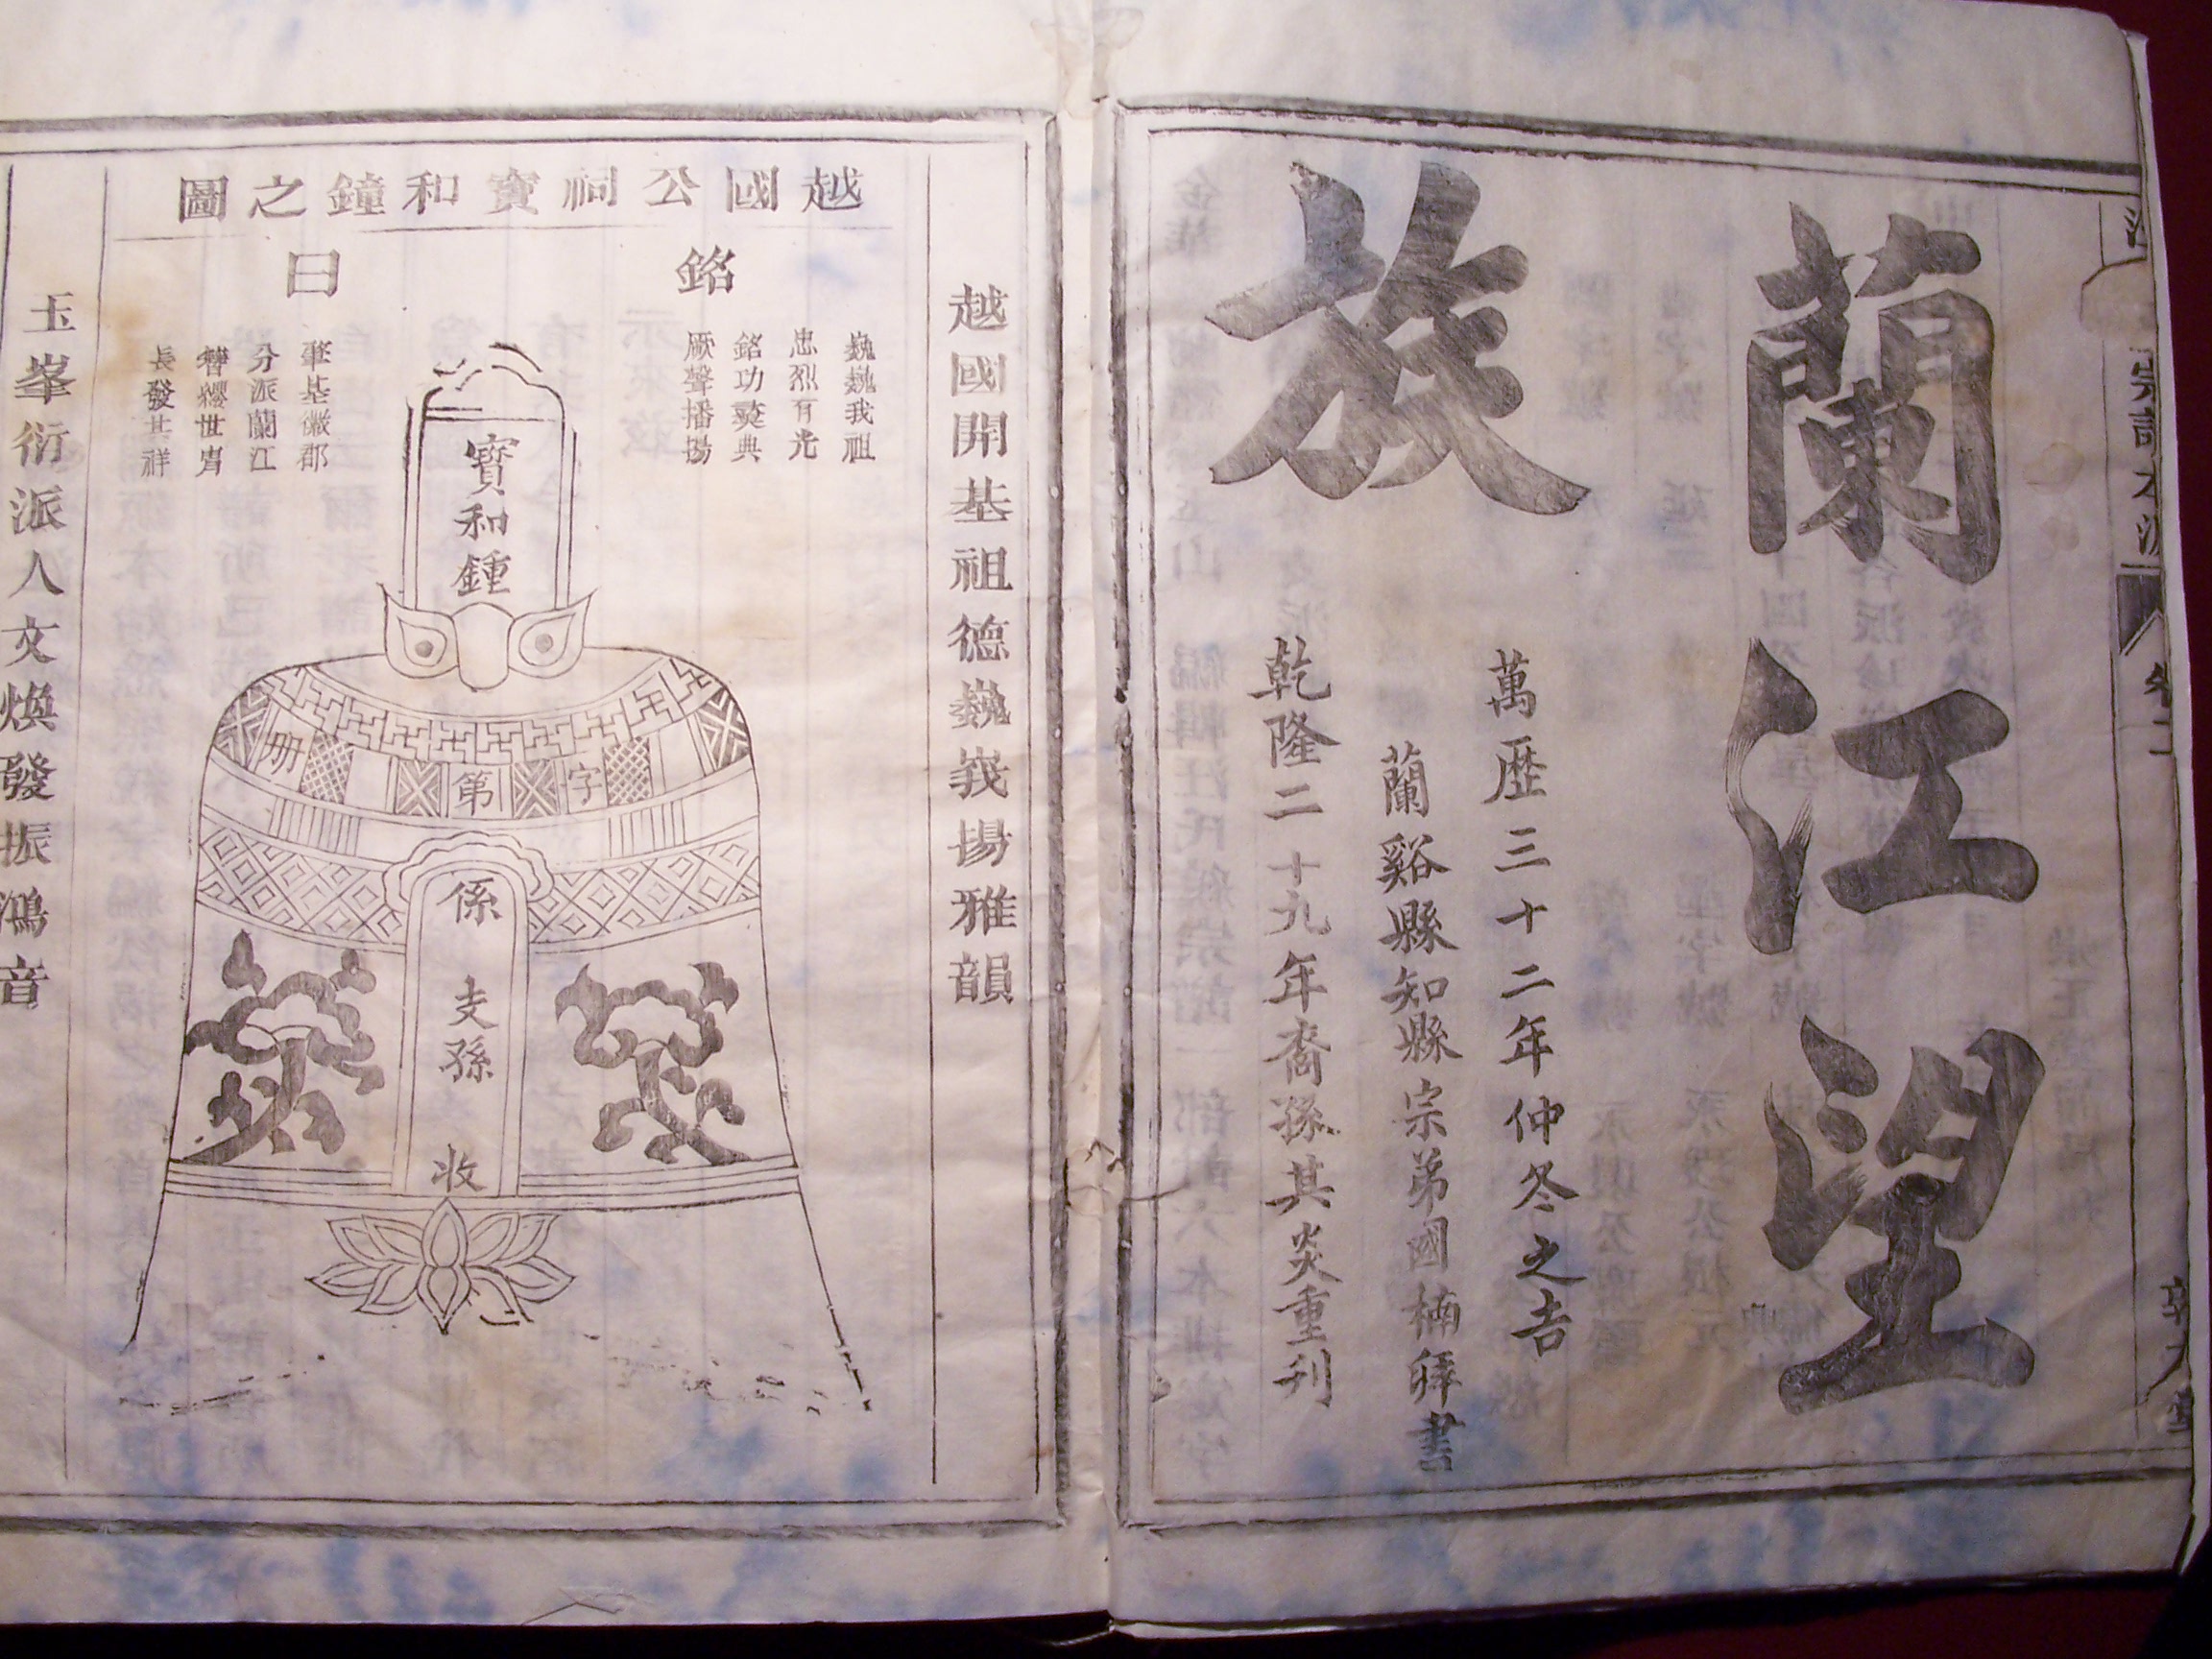 蘭江望
族
萬歷三十二年仲冬之吉
蘭谿縣知縣宗弟國楠拜書
乾隆二十九年裔孫其炎重刊
越國開基祖德巍峩揚雅韻
越國公祠寶和鐘之圖
銘曰
巍巍我祖
忠烈有光
銘功奕典
厥聲播揚
肇基徽郡
分派蘭江
簪纓世冑
長發其祥
寶和鍾
字第册
係
支孫
收
玉峯衍派人文煥發振鴻音